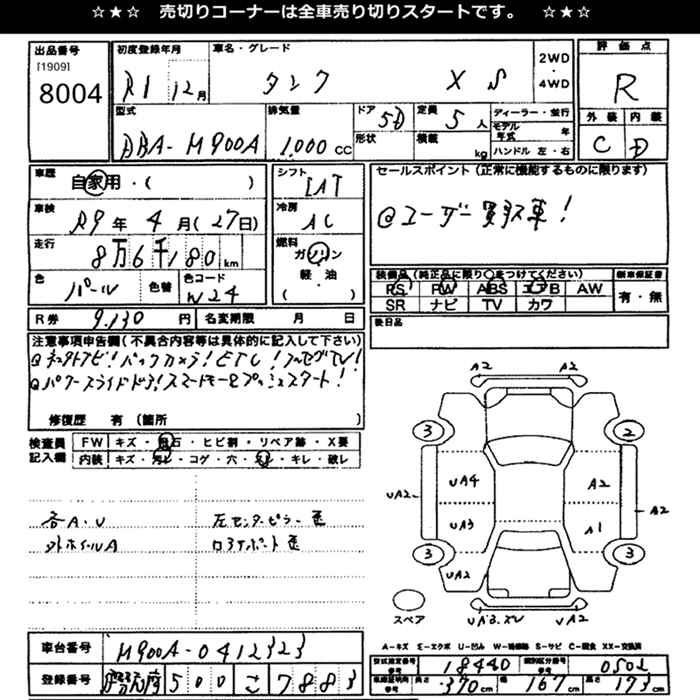 ☆★☆ 売切りコーナーは全車売り切りスタートです。 ☆★☆
出品番号 初度登録年月 車名・グレード 2WD・4WD 評価点
[1909]
8004 R1 12月 タンク XS R
型式 排気量 ドア 5D 定員 5人 ディーラー・並行 外装 内装
DBA-M900A 1,000cc 形状 積載 kg モデル年式 年 C D
ハンドル 左・右
車歴 自家用・( ) シフト IAT セールスポイント(正常に機能するものに限ります)
車検 R9年 4月(27日) 冷房 AC @ユーザー買取車!
走行 8万6千180km 燃料 ガソリン
軽・油
( )
色 パール 色替 色コード W24
装備品(純正品に限り○をつけてください) 新車保証書
PS PW ABS エアB AW 有・無
SR ナビ TV カワ
R券 9,130円 名変期限 月 日 後日品
注意事項申告欄(不具合内容等は具体的に記入して下さい)
バックカメラ!ETC!フルセグTV!
@パワースライドドア!スマートキー&プッシュスタート!
修復歴 有(箇所 )
検査員記入欄 FW キズ・飛石・ヒビ割・リペア跡・X要
内装 キズ・汚レ・コゲ・穴・キレ・破レ
各A.U 左センターピラー
外ホイルA ロアサポート
A2 A2
3 2
UA4 A2
UA2 A2
UA3 A1
3 3
UA2
UA3 UA2
スペア
A−キズ E−エクボ U−凹み W−補修跡 S−サビ C−腐食 XX−交換済
車台番号 M900A-0412323
型式指定番号 18440 類別区分番号 0502
登録番号 500 こ 7883
長さ 370cm 幅 167cm 高さ 173cm